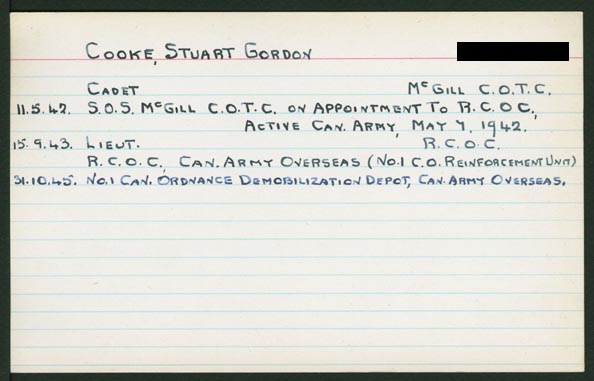 COOKE, STUART GORDON
CADET McGILL C.O.T.C.
11.5.42. S.O.S. McGILL C.O.T.C. ON APPOINTMENT TO R.C.O.C.,
ACTIVE CAN. ARMY, MAY 7, 1942.
15.9.43. LIEUT. R.C.O.C.
R.C.O.C. CAN. ARMY OVERSEAS (NO.1 C.O. REINFORCEMENT UNIT)
31.10.45. NO.1 CAN. ORDNANCE DEMOBILIZATION DEPOT, CAN. ARMY OVERSEAS.